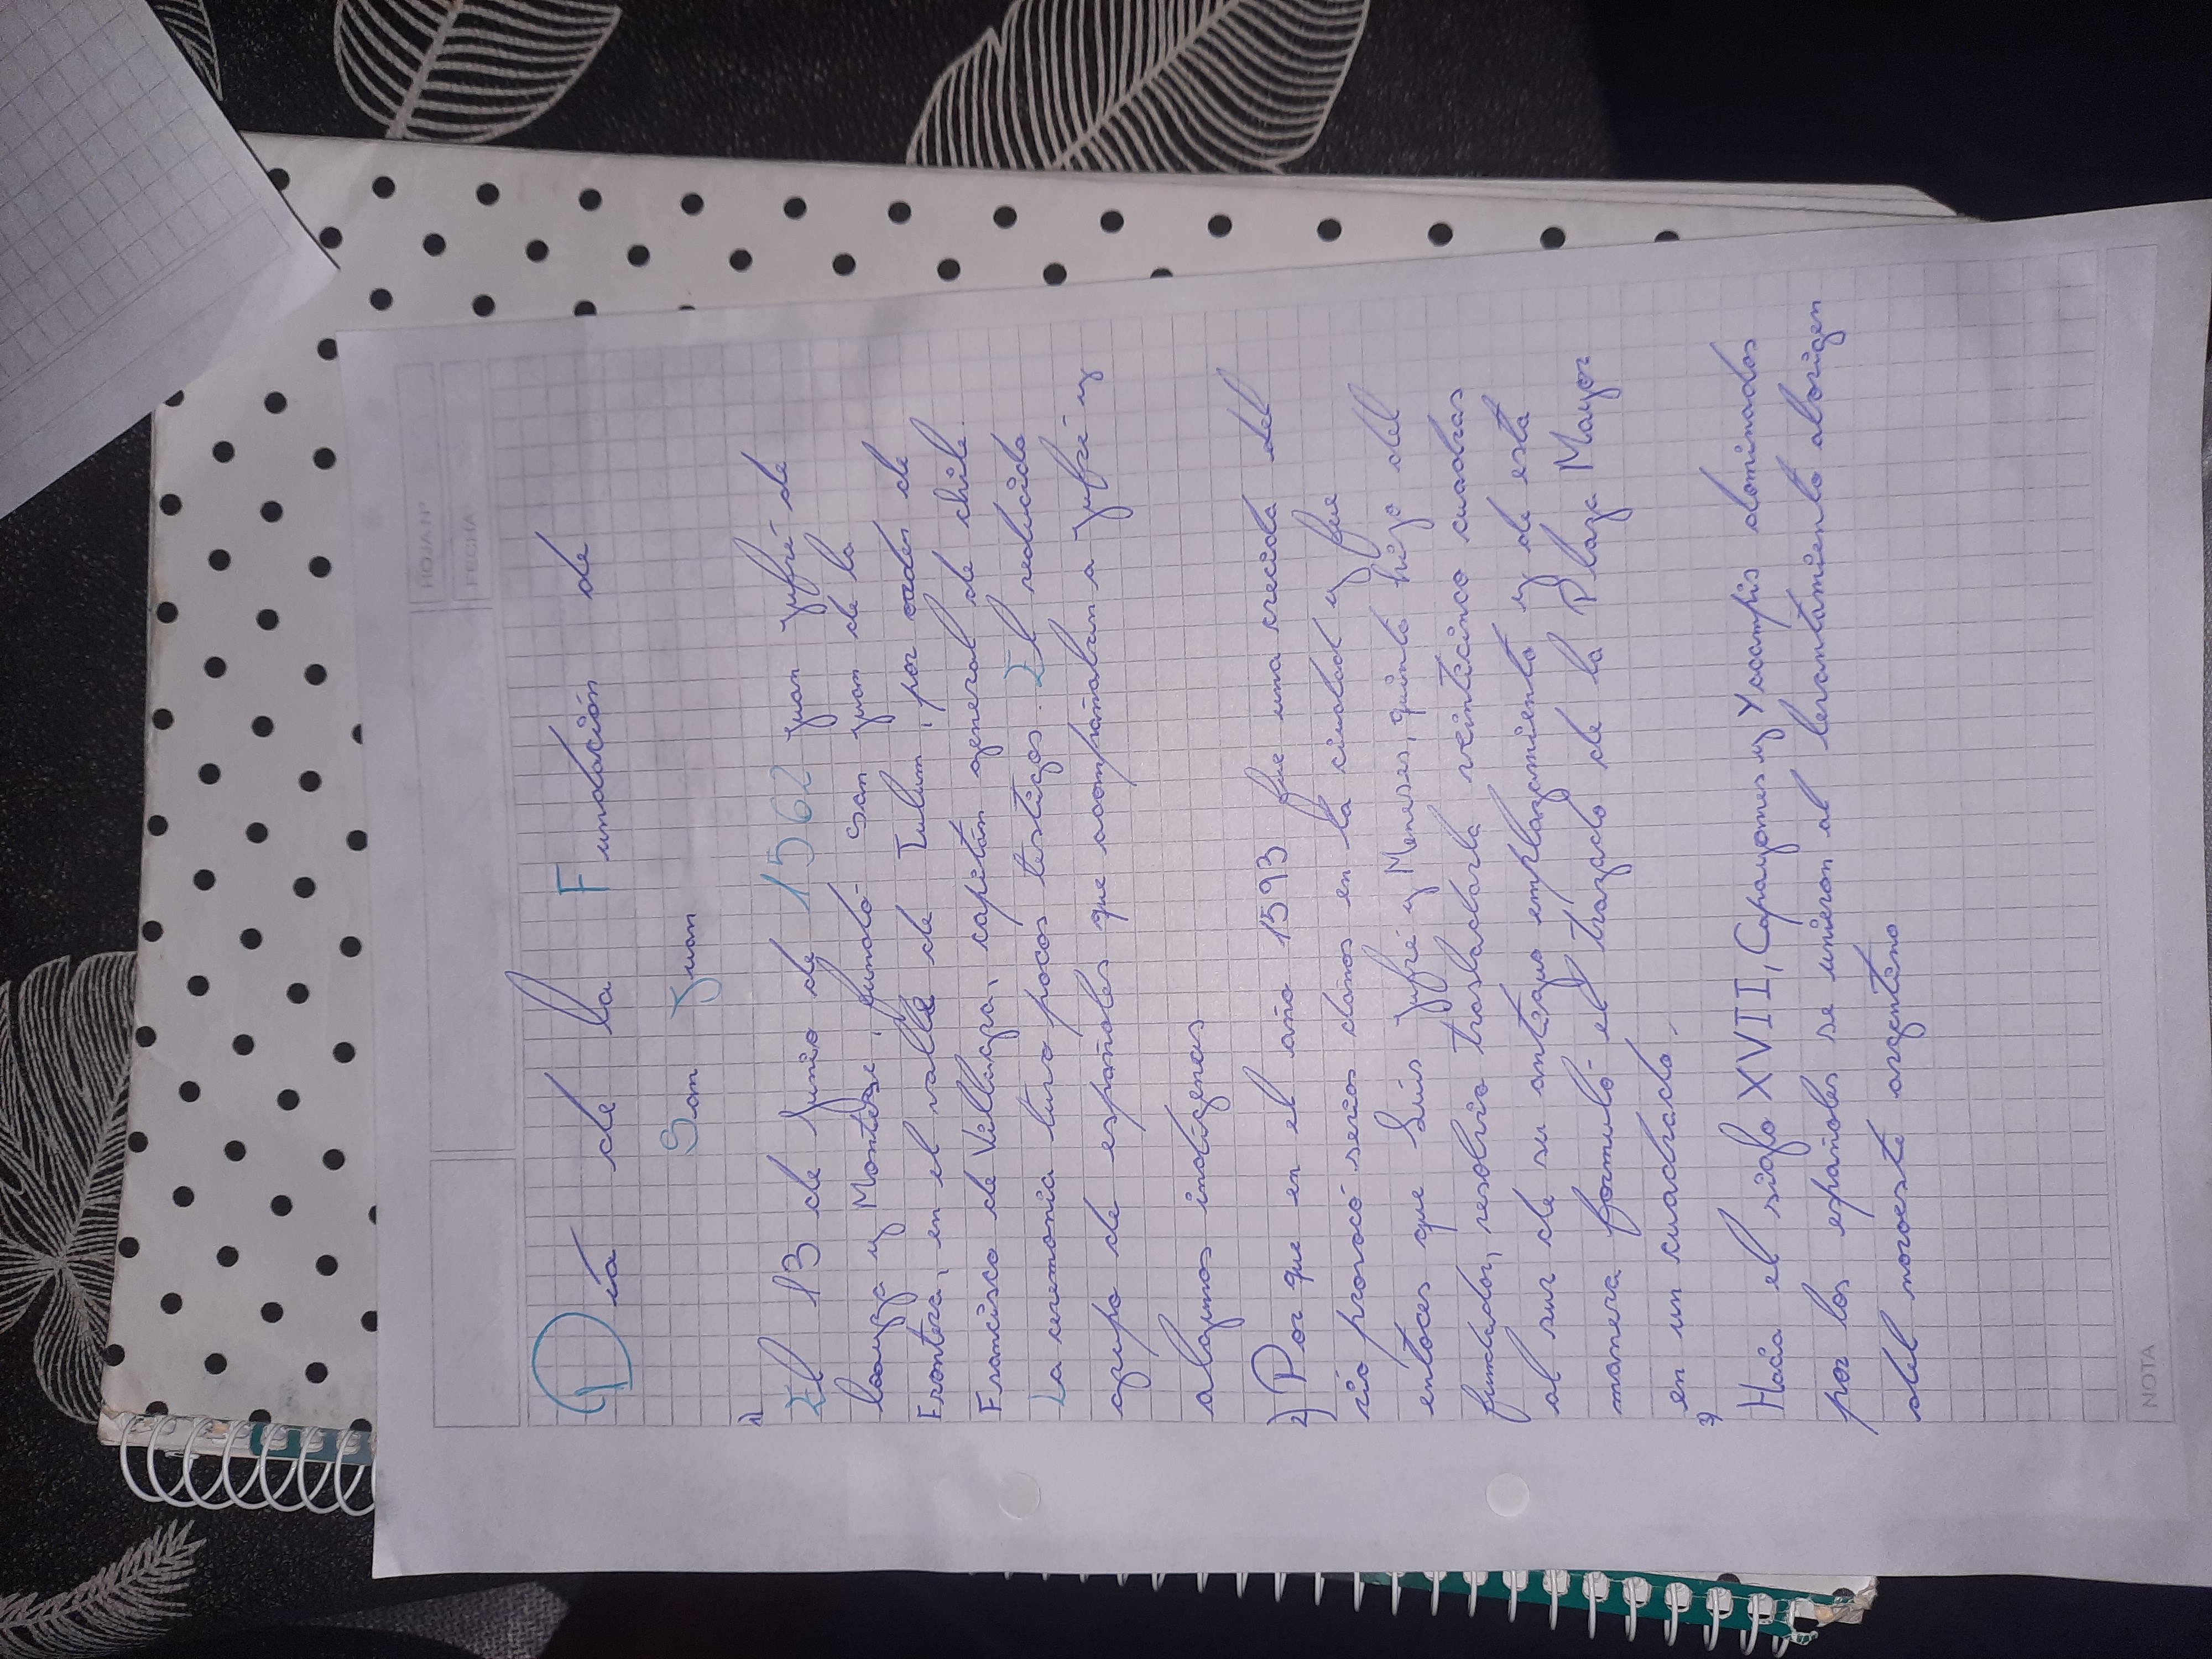 HOJA Nº
FECHA
Día de la Fundación de
San Juan
1)
El 13 de Junio de 1562 Juan Jufré de
loayza y Montese, fundó San Juan de la
Frontera, en el valle de Tulum, por orden de
Francisco de Villagra, capitán general de chile.
La ceremonia tuvo pocos testigos. El reducido
grupo de españoles que acompañaban a Jufré y
algunos indígenas
2) Por que en el año 1593 fue una crecida del
río provocó serios daños en la ciudad y fue
entoces que Luis Jufré y Meneses, quinto hijo del
fundador, resolvio trasladarla veinticinco cuadras
al sur de su antiguo emplazamiento y de esta
manera formuló el trazado de la Plaza Mayor
en un cuadrado.
3)
Hacia el siglo XVII, Capayanes y Yacampis dominados
por los españoles se unieron al levantamiento aborigen
del noroeste argentino
NOTA